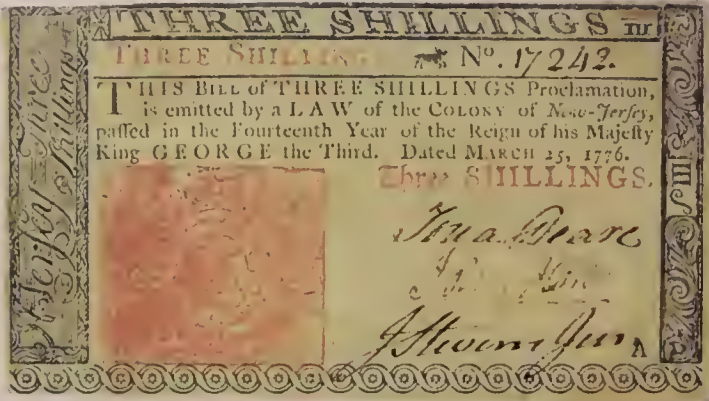 THREE SHILLINGS III
THREE SHILLINGS No. 17242.
THIS BILL of THREE SHILLINGS Proclamation,
is emitted by a LAW of the COLONY of New-Jerſey,
paſſed in the Fourteenth Year of the Reign of his Majeſty
King GEORGE the Third. Dated MARCH 25, 1776.
Three SHILLINGS.
Jona. Deare
J Stevens Jun
A
Jerſey Three
Shillings
ſ III